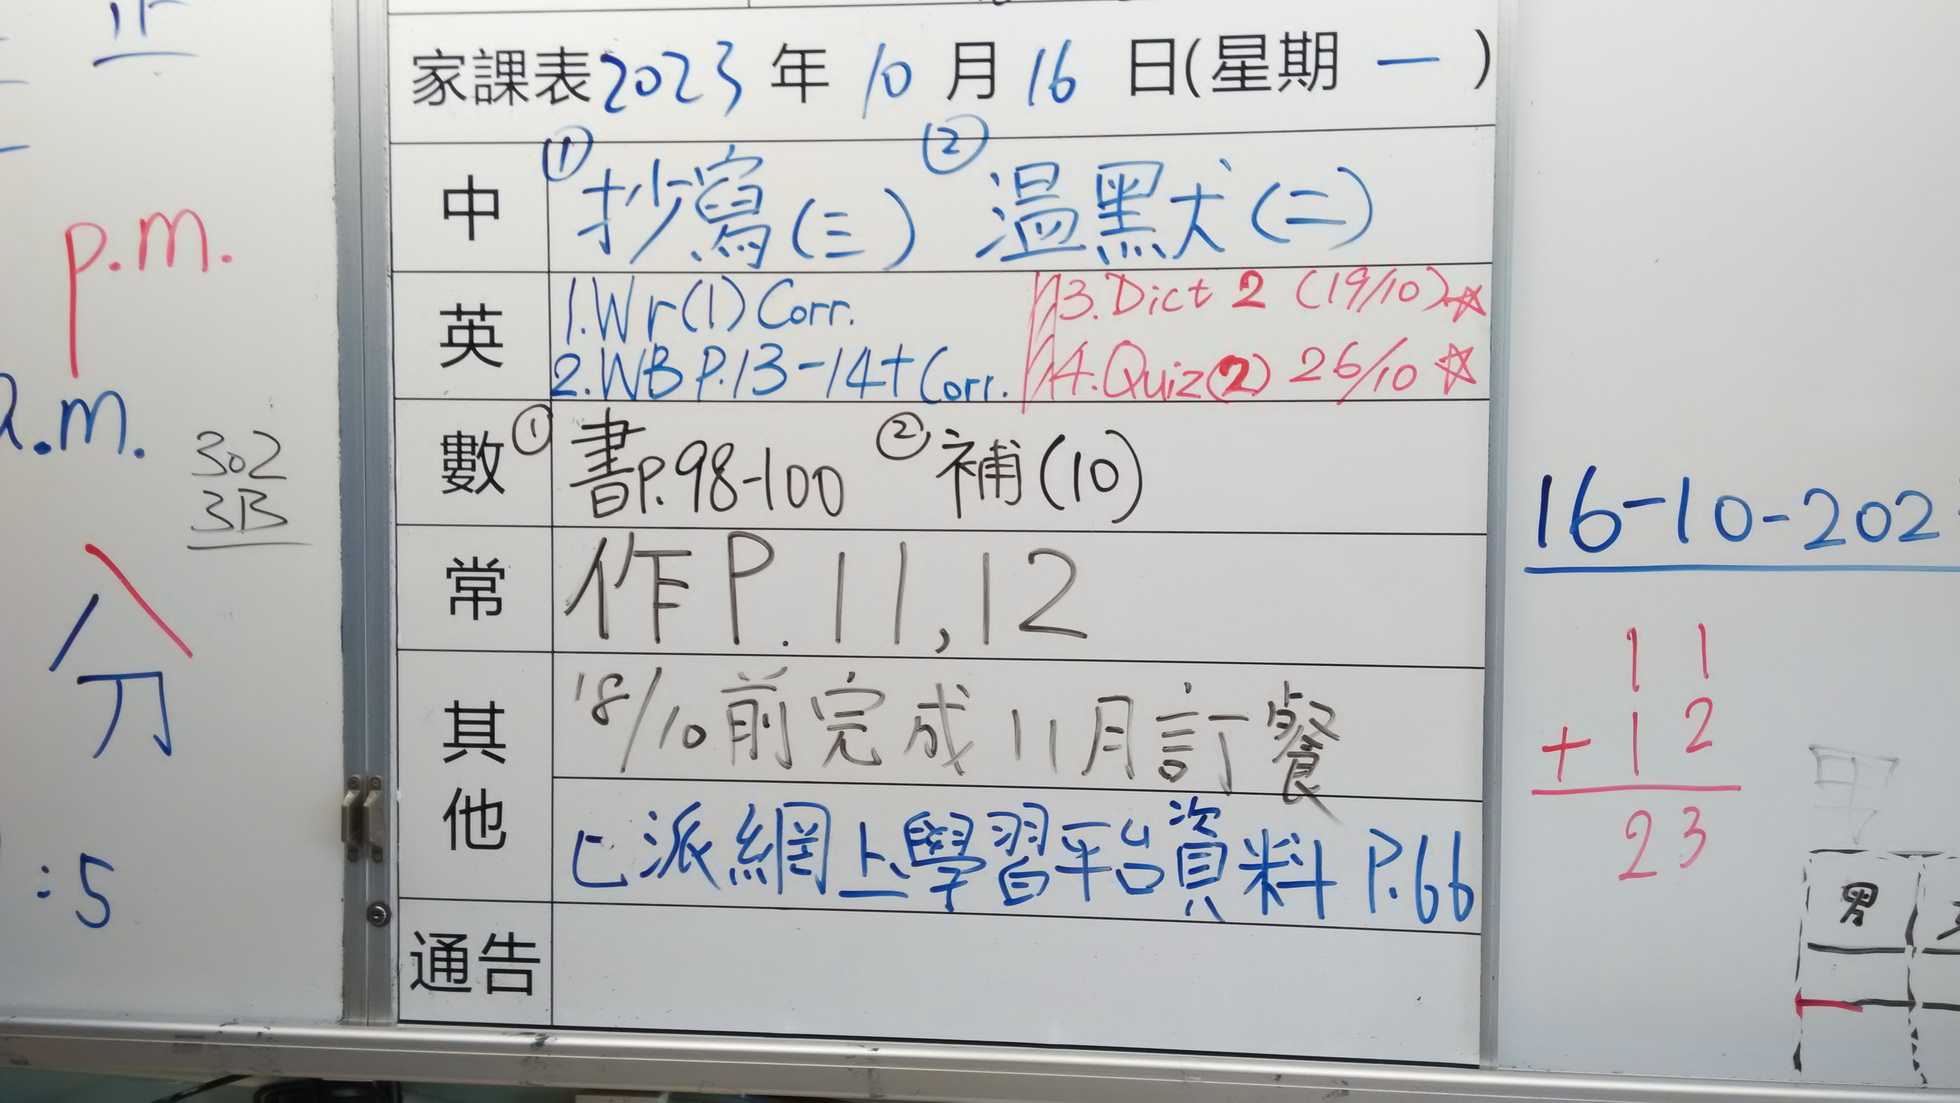 p.m.
a.m.
302
3B
分
:5
家課表2023年10月16日(星期一)
中 ①抄寫(三) ②温黑犬(二)
英 1.Wr(1)Corr. 3.Dict 2 (19/10)☆
2.WB P.13-14+Corr. 4.Quiz(2) 26/10 ☆
數 ①書P.98-100 ②補(10)
常 作P.11,12
其他 18/10前完成11月訂餐
已派網上學習平台資料 P.66
通告
16-10-202
11
+12
23
男
男